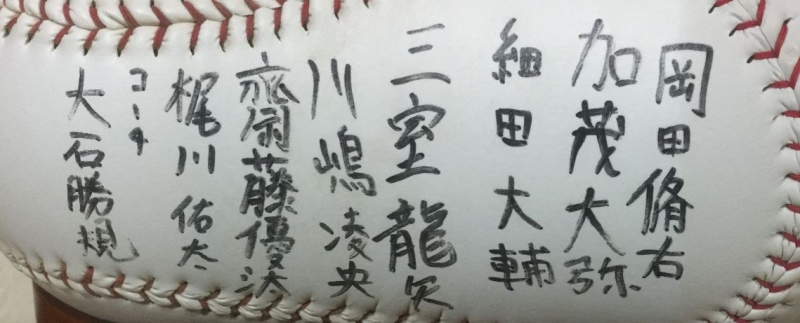 岡田脩右
加茂大弥
細田大輔
三室龍矢
川嶋凌央
齋藤優汰
梶川佑太
コーチ
大石勝規